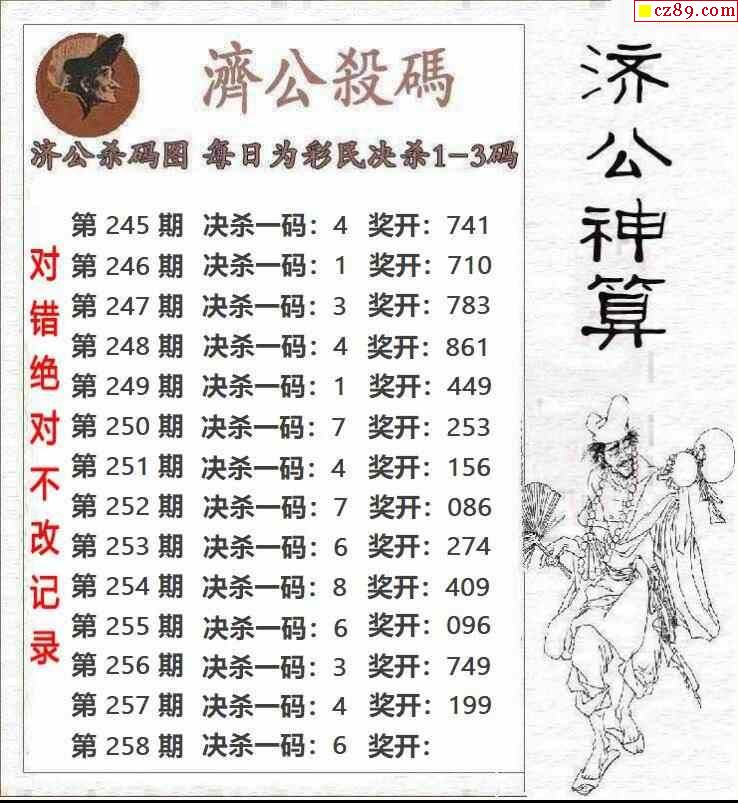 cz89.com
濟公殺碼
济公杀码图 每日为彩民决杀1-3码
第 245 期 决杀一码：4 奖开：741
第 246 期 决杀一码：1 奖开：710
第 247 期 决杀一码：3 奖开：783
第 248 期 决杀一码：4 奖开：861
第 249 期 决杀一码：1 奖开：449
第 250 期 决杀一码：7 奖开：253
第 251 期 决杀一码：4 奖开：156
第 252 期 决杀一码：7 奖开：086
第 253 期 决杀一码：6 奖开：274
第 254 期 决杀一码：8 奖开：409
第 255 期 决杀一码：6 奖开：096
第 256 期 决杀一码：3 奖开：749
第 257 期 决杀一码：4 奖开：199
第 258 期 决杀一码：6 奖开：
对错绝对不改记录
济公神算